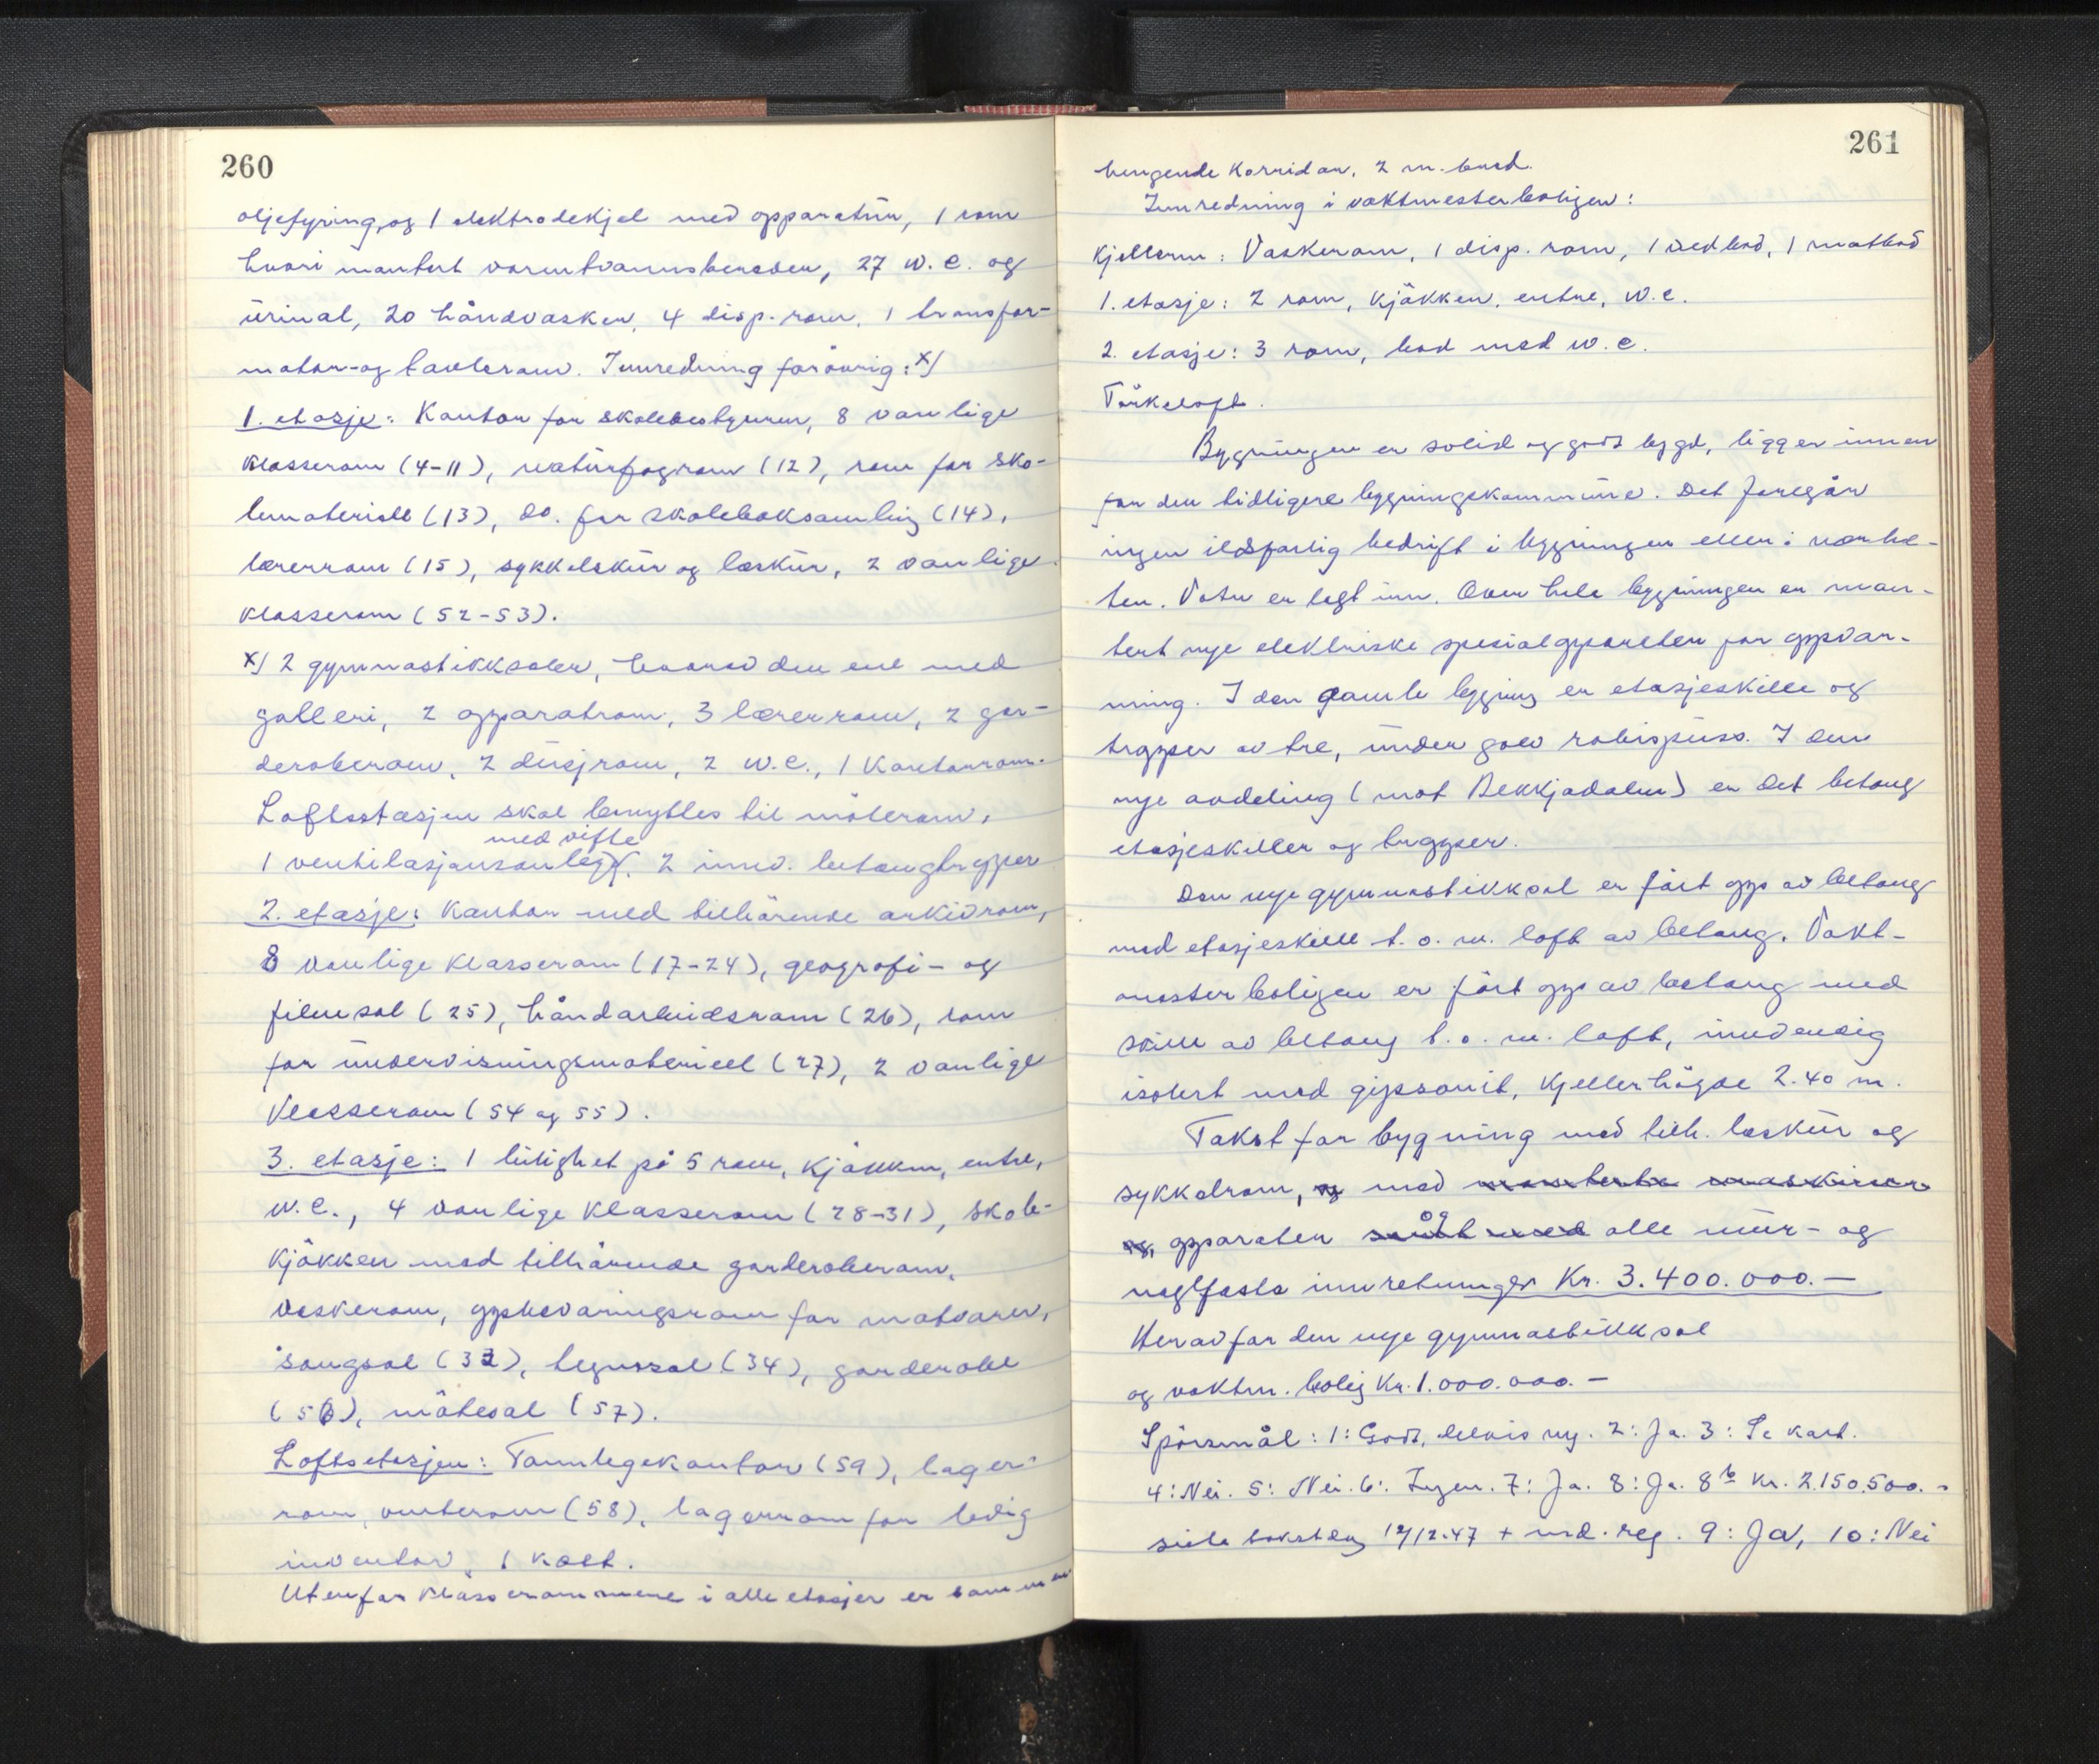 260
oljefyring, og 1 elektrodekjel med apparatur, 1 rom
hvori montert varmtvannsbereder, 27 w.c. og
urinal, 20 håndvasker, 4 disp. rom, 1 transfor-
mator- og tavlerom. Innredning forövrig: x)
1. etasje: Kontor for skolebestyreren, 8 vanlige
klasserom (4-11), naturfagrom (12), rom for sko-
lemateriell (13), do. for skoleboksamling (14),
lærerrom (15), sykkelskur og leskur, 2 vanlige
klasserom (52-53).
x) 2 gymnastikksaler, hvorav den ene med
galleri, 2 apparatrom, 3 lærerrom, 2 gar-
deroberom, 2 dusjrom, 2 w.c., 1 kontorrom.
Loftsetasjen skal benyttes til möterom,
med vifte
1 ventilasjonsanlegg. 2 innv. betongtrapper
2. etasje: Kontor med tilhörende arkivrom,
8 vanlige klasserom (17-24), geografi- og
filmsal (25), håndarbeidsrom (26), rom
for undervisningsmateriell (27), 2 vanlige
klasserom (54 og 55).
3. etasje: 1 leilighet på 5 rom, kjökken, entre,
w.c., 4 vanlige klasserom (28-31), skole-
kjökken med tilhörende garderoberom,
vaskerom, oppbevaringsrom for matvarer,
sangsal (32), tegnesal (34), garderobe
(56), mötesal (57).
Loftsetasjen: Tannlegekontor (59), lager-
rom, venterom (58), lagerrom for ledig
inventar, 1 kott.
Utenfor klasserommene i alle etasjer er sammen
261
hengende korridor, 2 m. bred.
Innredning i vaktmesterboligen:
Kjelleren: Vaskerom, 1 disp. rom, 1 vedbod, 1 matbod
1. etasje: 2 rom, kjökken, entre, w.c.
2. etasje: 3 rom, bad med w.c.
Törkeloft.
Bygningen er solid og godt bygd, ligger innen
for den tidligere bygningskommune. Det foregår
ingen ildsfarlig bedrift i bygningen eller i nærhe-
ten. Vatn er lagt inn. Over hele bygningen er mon-
tert nye elektriske spesialapparater for oppvar-
ming. I den gamle bygning er etasjeskille og
trapper av tre, under golv rabispuss. I den
nye avdeling (mot Bekkjadalen) er det betong
etasjeskiller og trapper.
Den nye gymnastikksal er fört opp av betong
med etasjeskille t. o. m. loft av betong. Vakt-
mesterboligen er fört opp av betong med
skille av betong t. o. m. loft, innvendig
isolert med gipsonit, kjellerhögde 2.40 m.
Takst for bygning med tilh. leskur og
sykkelrom, og med monterte maskiner
og apparater og samt med alle mur- og
naglfaste innretninger Kr. 3.400.000.—
Herav for den nye gymnastikksal
og vaktm. bolig Kr. 1.000.000.—
Spörsmål: 1: Godt, delvis ny. 2: Ja. 3: Se kart.
4: Nei. 5: Nei. 6: Ingen. 7: Ja. 8: Ja. 8 b Kr. 2.150.500.-
siste takst av 12/12.47 + ind. reg. 9: Ja, 10: Nei